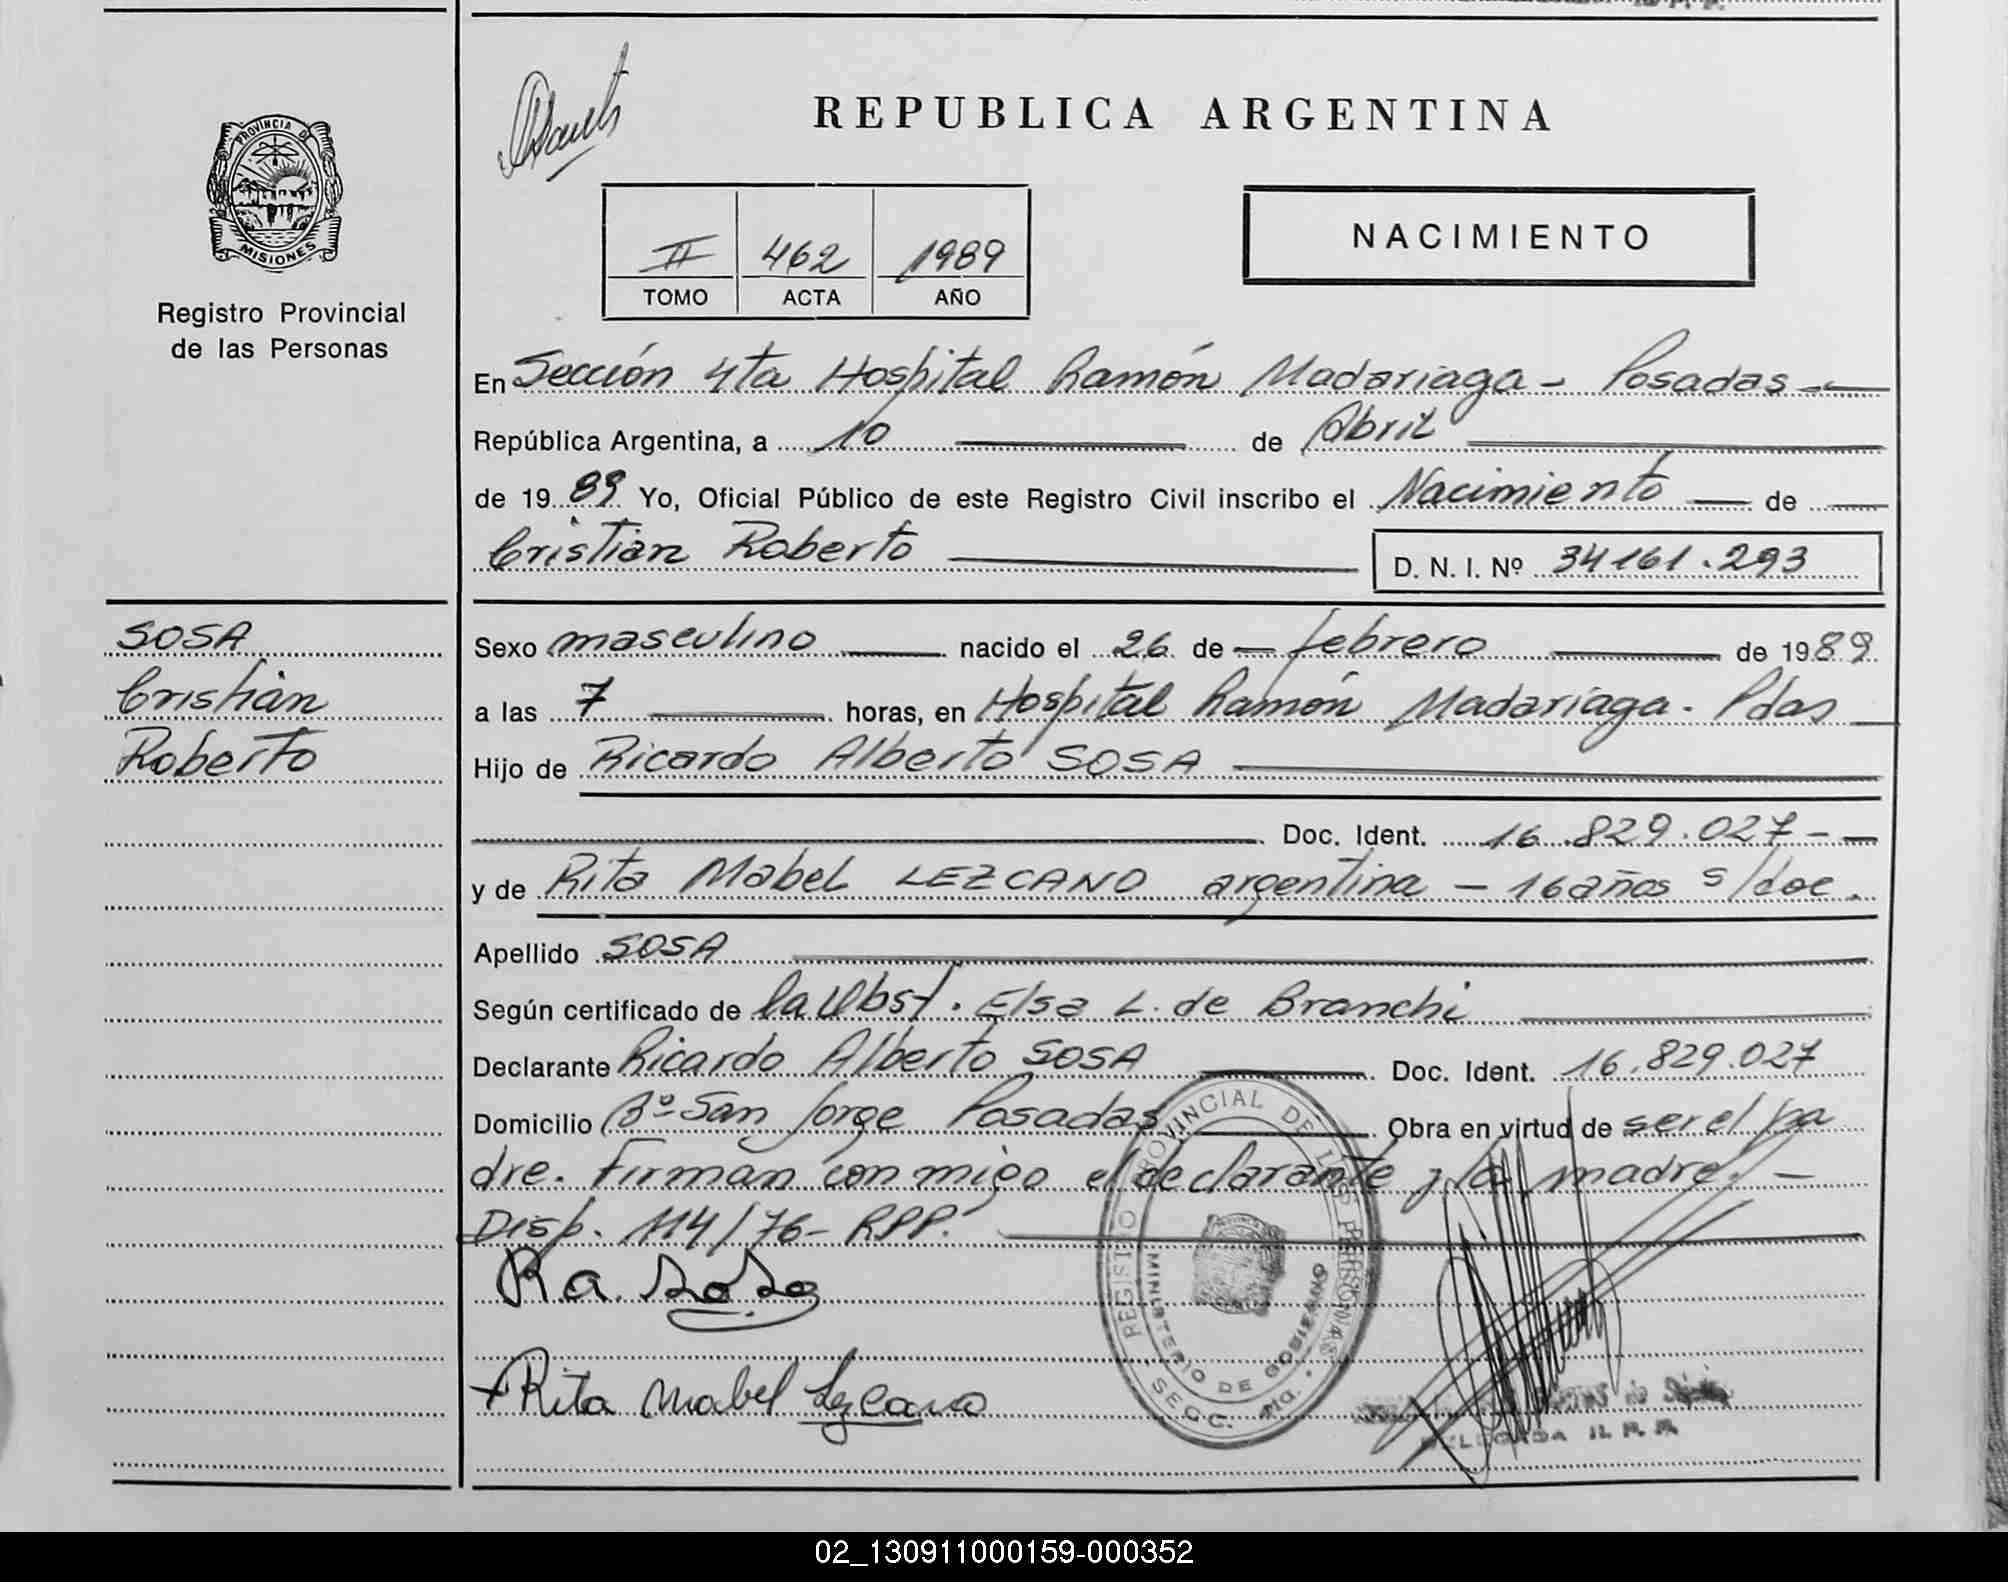 REPUBLICA ARGENTINA
PROVINCIA DE
MISIONES
Registro Provincial
de las Personas
II 462 1989
TOMO ACTA AÑO
NACIMIENTO
En Sección 4ta Hospital Ramón Madariaga - Posadas -
República Argentina, a 10 de Abril
de 1989 Yo, Oficial Público de este Registro Civil inscribo el Nacimiento de
Cristian Roberto D. N. I. Nº 34161.293
SOSA
Cristian
Roberto
Sexo masculino nacido el 26 de febrero de 1989
a las 7 horas, en Hospital Ramón Madariaga - Pdas
Hijo de Ricardo Alberto SOSA
Doc. Ident. 16.829.027 -
y de Rita Mabel LEZCANO argentina - 16 años s/doc.
Apellido SOSA
Según certificado de la Obst. Elsa L. de Branchi
Declarante Ricardo Alberto SOSA Doc. Ident. 16.829.027
Domicilio Bº San Jorge Posadas Obra en virtud de ser el pa
dre. Firman conmigo el declarante y la madre. -
Disp. 114/76 - RPP.
Ra. Sosa
Rita Mabel Lezcano
REGISTRO PROVINCIAL DE LAS PERSONAS
MINISTERIO DE GOBIERNO
SECC. 4ta.
DELEGADA R. P. P.
02_130911000159-000352